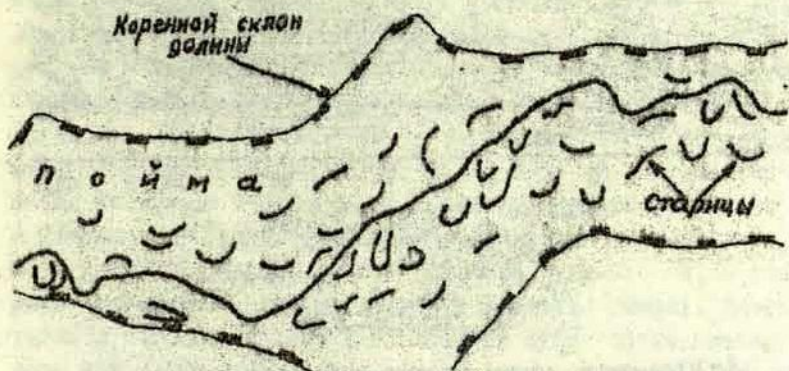 Коренной склон
долины
пойма
старицы